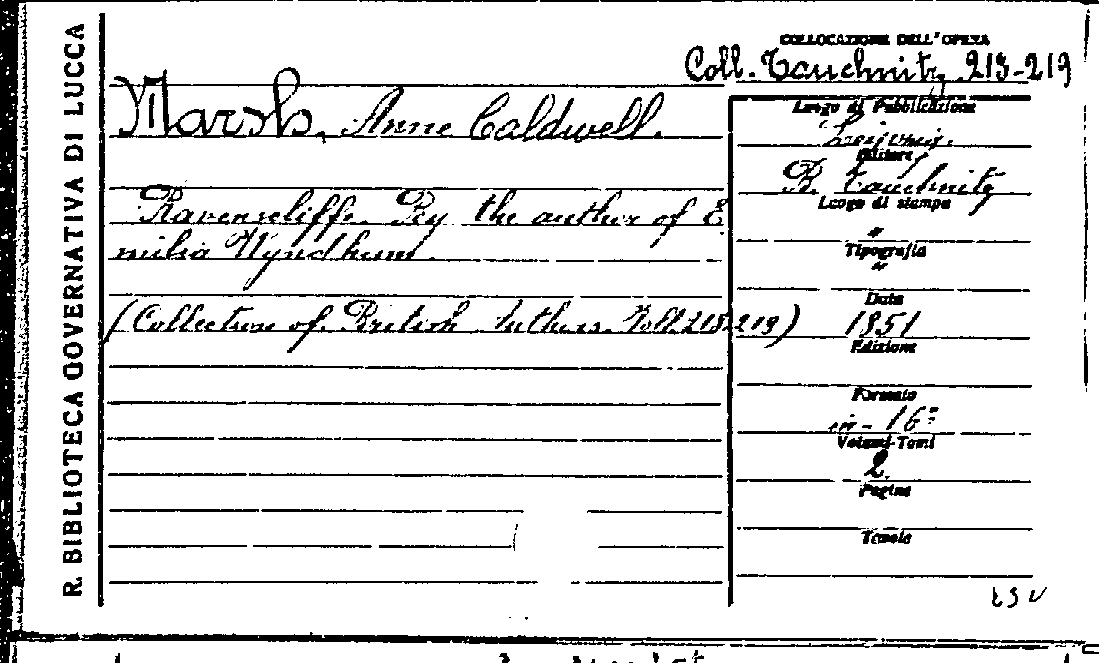 R. BIBLIOTECA GOVERNATIVA DI LUCCA
COLLOCAZIONE DELL'OPERA
Coll. Tauchnitz 213-219
Marsh, Anne Caldwell.
Ravenscliffe. By the author of E
milia Wyndham.
(Collection of British Authors. Voll. 218-219)
Luogo di Pubblicazione
Leipzig.
Editore
B. Tauchnitz
Luogo di stampa
"
Tipografia
"
Data
1851
Edizione
Formato
in-16º
Volumi-Tomi
2.
Pagine
Tavole